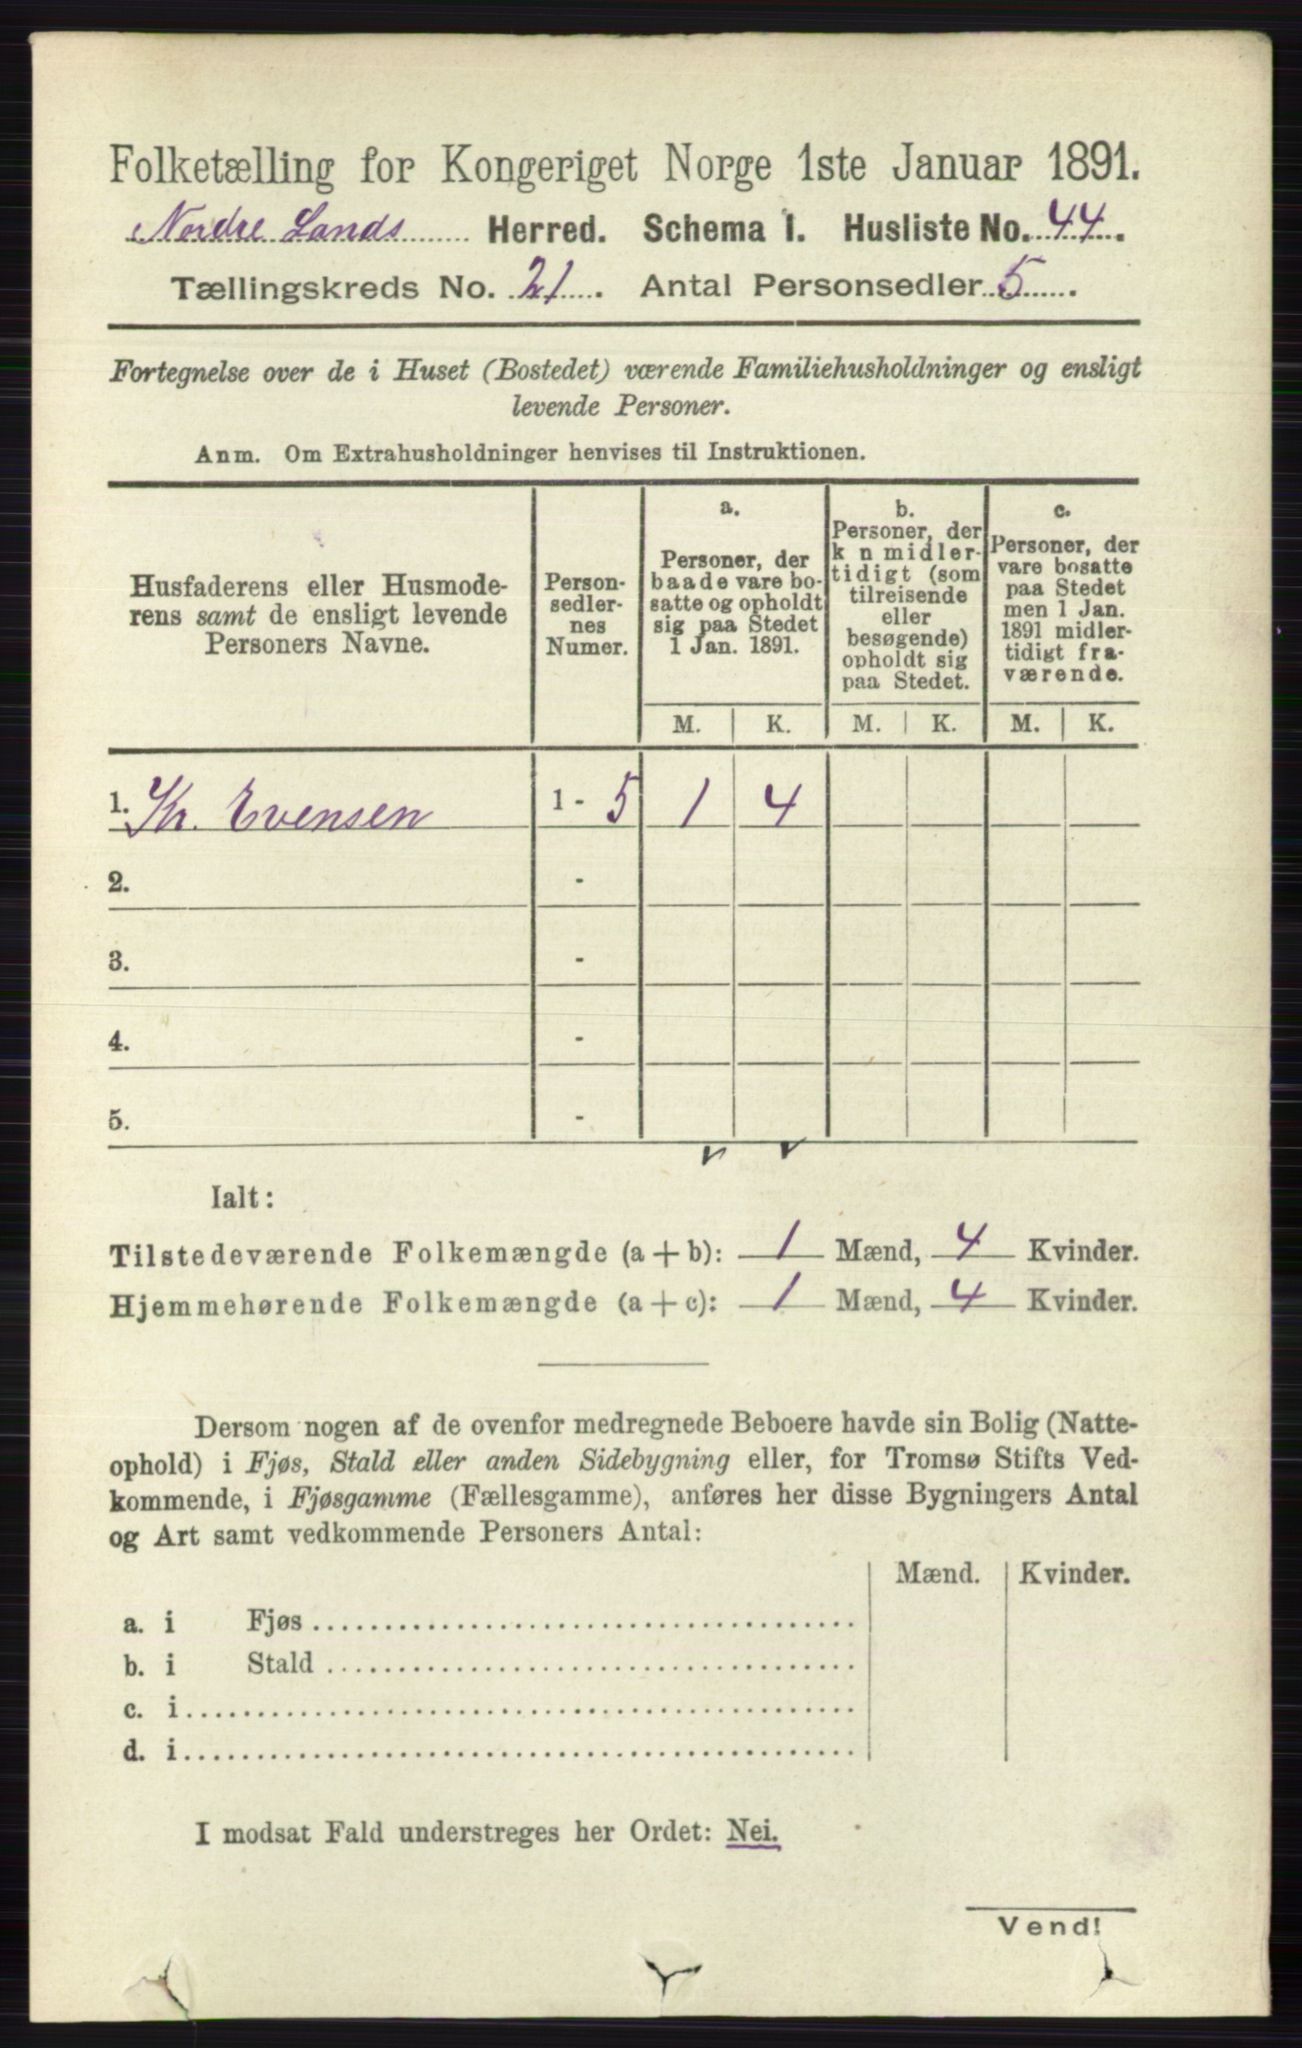 Folketælling for Kongeriget Norge 1ste Januar 1891.
Nordre Lands Herred. Schema I. Husliste No. 44.
Tællingskreds No. 21. Antal Personsedler 5.
Fortegnelse over de i Huset (Bostedet) værende Familiehusholdninger og ensligt
levende Personer.
Anm. Om Extrahusholdninger henvises til Instruktionen.
Husfaderens eller Husmode-
rens samt de ensligt levende
Personers Navne.
Person-
sedler-
nes
Numer.
a.
Personer, der
baade vare bo-
satte og opholdt
sig paa Stedet
1 Jan. 1891.
b.
Personer, der
k n midler-
tidigt (som
tilreisende
eller
besøgende)
opholdt sig
paa Stedet.
c.
Personer, der
vare bosatte
paa Stedet
men 1 Jan.
1891 midler-
tidigt fra-
værende.
M. K. M. K. M. K.
1. Kr. Evensen 1 - 5 1 4
2. -
3. -
4. -
5. -
Ialt:
Tilstedeværende Folkemængde (a + b): 1 Mænd, 4 Kvinder.
Hjemmehørende Folkemængde (a + c): 1 Mænd, 4 Kvinder.
Dersom nogen af de ovenfor medregnede Beboere havde sin Bolig (Natte-
ophold) i Fjøs, Stald eller anden Sidebygning eller, for Tromsø Stifts Ved-
kommende, i Fjøsgamme (Fællesgamme), anføres her disse Bygningers Antal
og Art samt vedkommende Personers Antal:
Mænd. Kvinder.
a. i Fjøs
b. i Stald
c. i
d. i
I modsat Fald understreges her Ordet: Nei.
Vend!